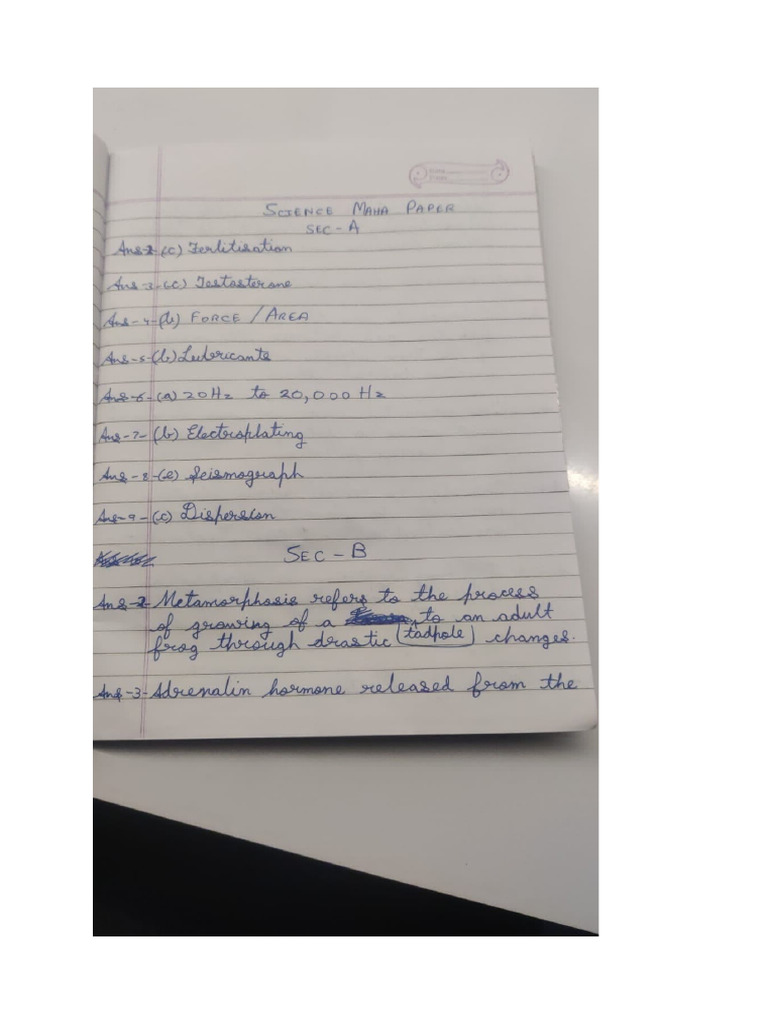 SCIENCE MAHA PAPER
SEC-A
Ans-2-(c) Ferlitisation
Ans-3-(c) Testosterone
Ans-4-(b) FORCE / AREA
Ans-5-(b) Lubricants
Ans-6-(a) 20Hz to 20,000 Hz
Ans-7-(b) Electroplating
Ans-8-(c) Seismograph
Ans-9-(c) Dispersion
SEC-B
Ans-2- Metamorphosis refers to the process
of growing of a to an adult
frog through drastic tadpole changes.
Ans-3- Adrenalin hormone released from the